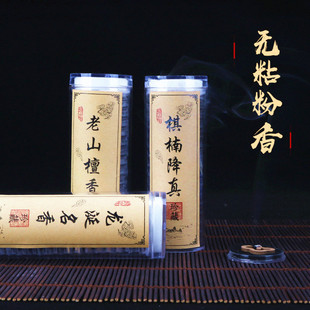 无粘粉香
老山檀香
棋楠降真
珍藏
龙涎名香
珍藏